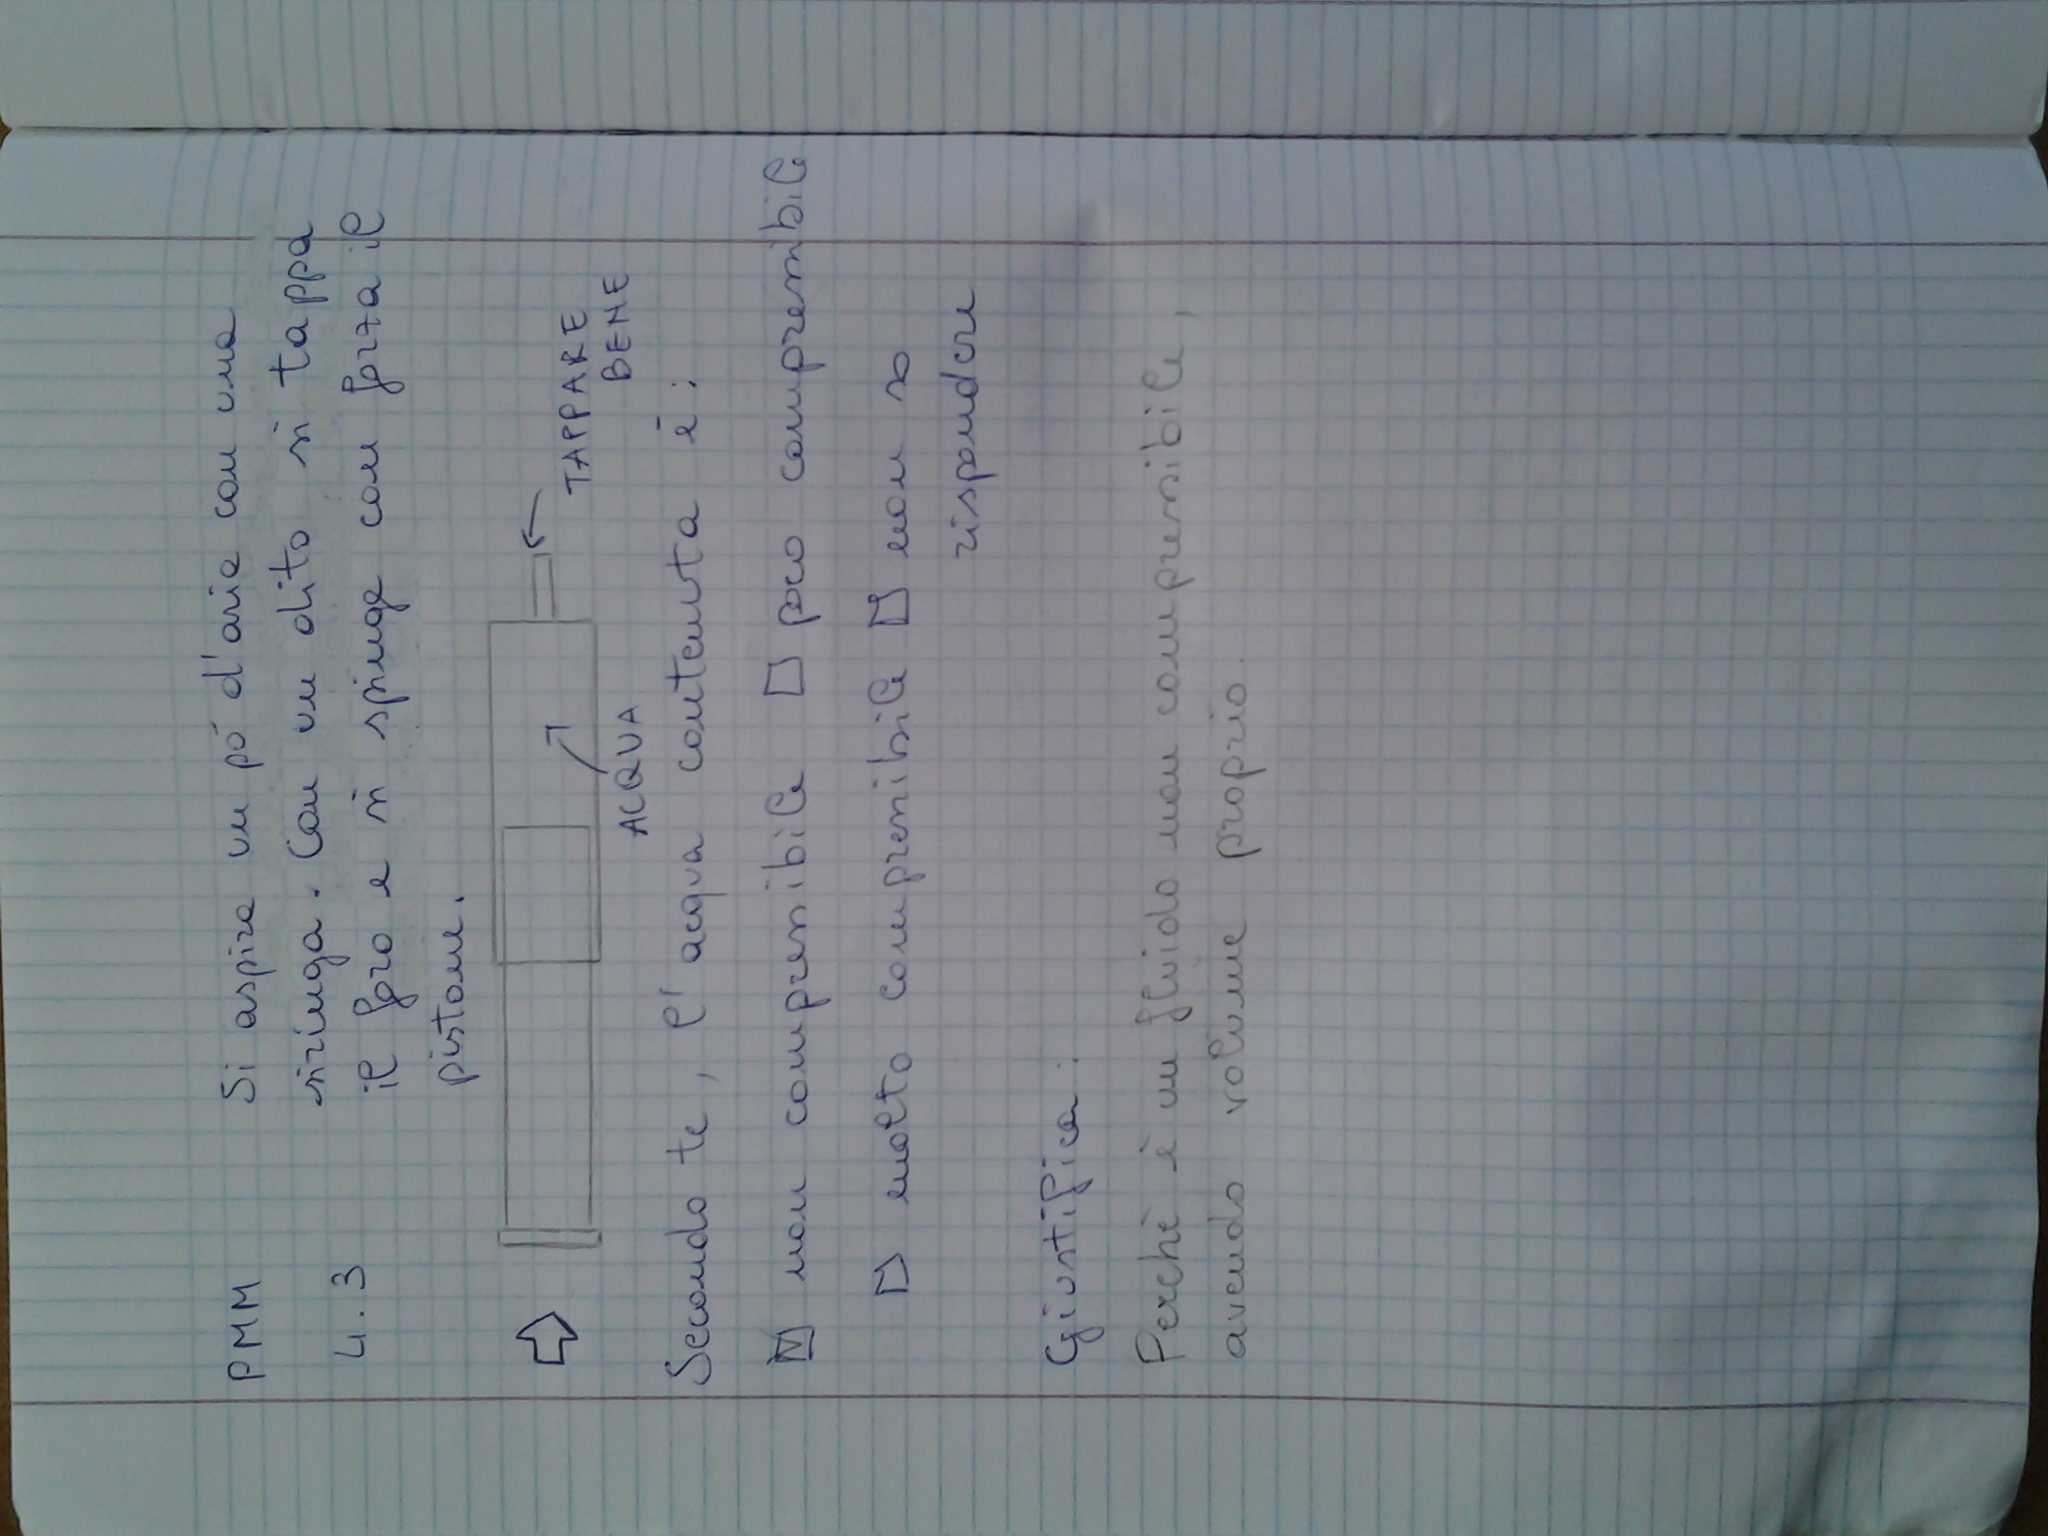 PMM
4.3
Si aspira un pó d'aria con una
siringa. Con un dito si tappa
il foro e si spinge con forza il
pistone.
TAPPARE
BENE
ACQUA
Secondo te, l'acqua contenuta è:
☑ non compressibile ☐ poco compressibile
☐ molto compressibile ☐ non so
rispondere
Giustifica:
Perchè è un fluido non compressibile,
avendo volume proprio.